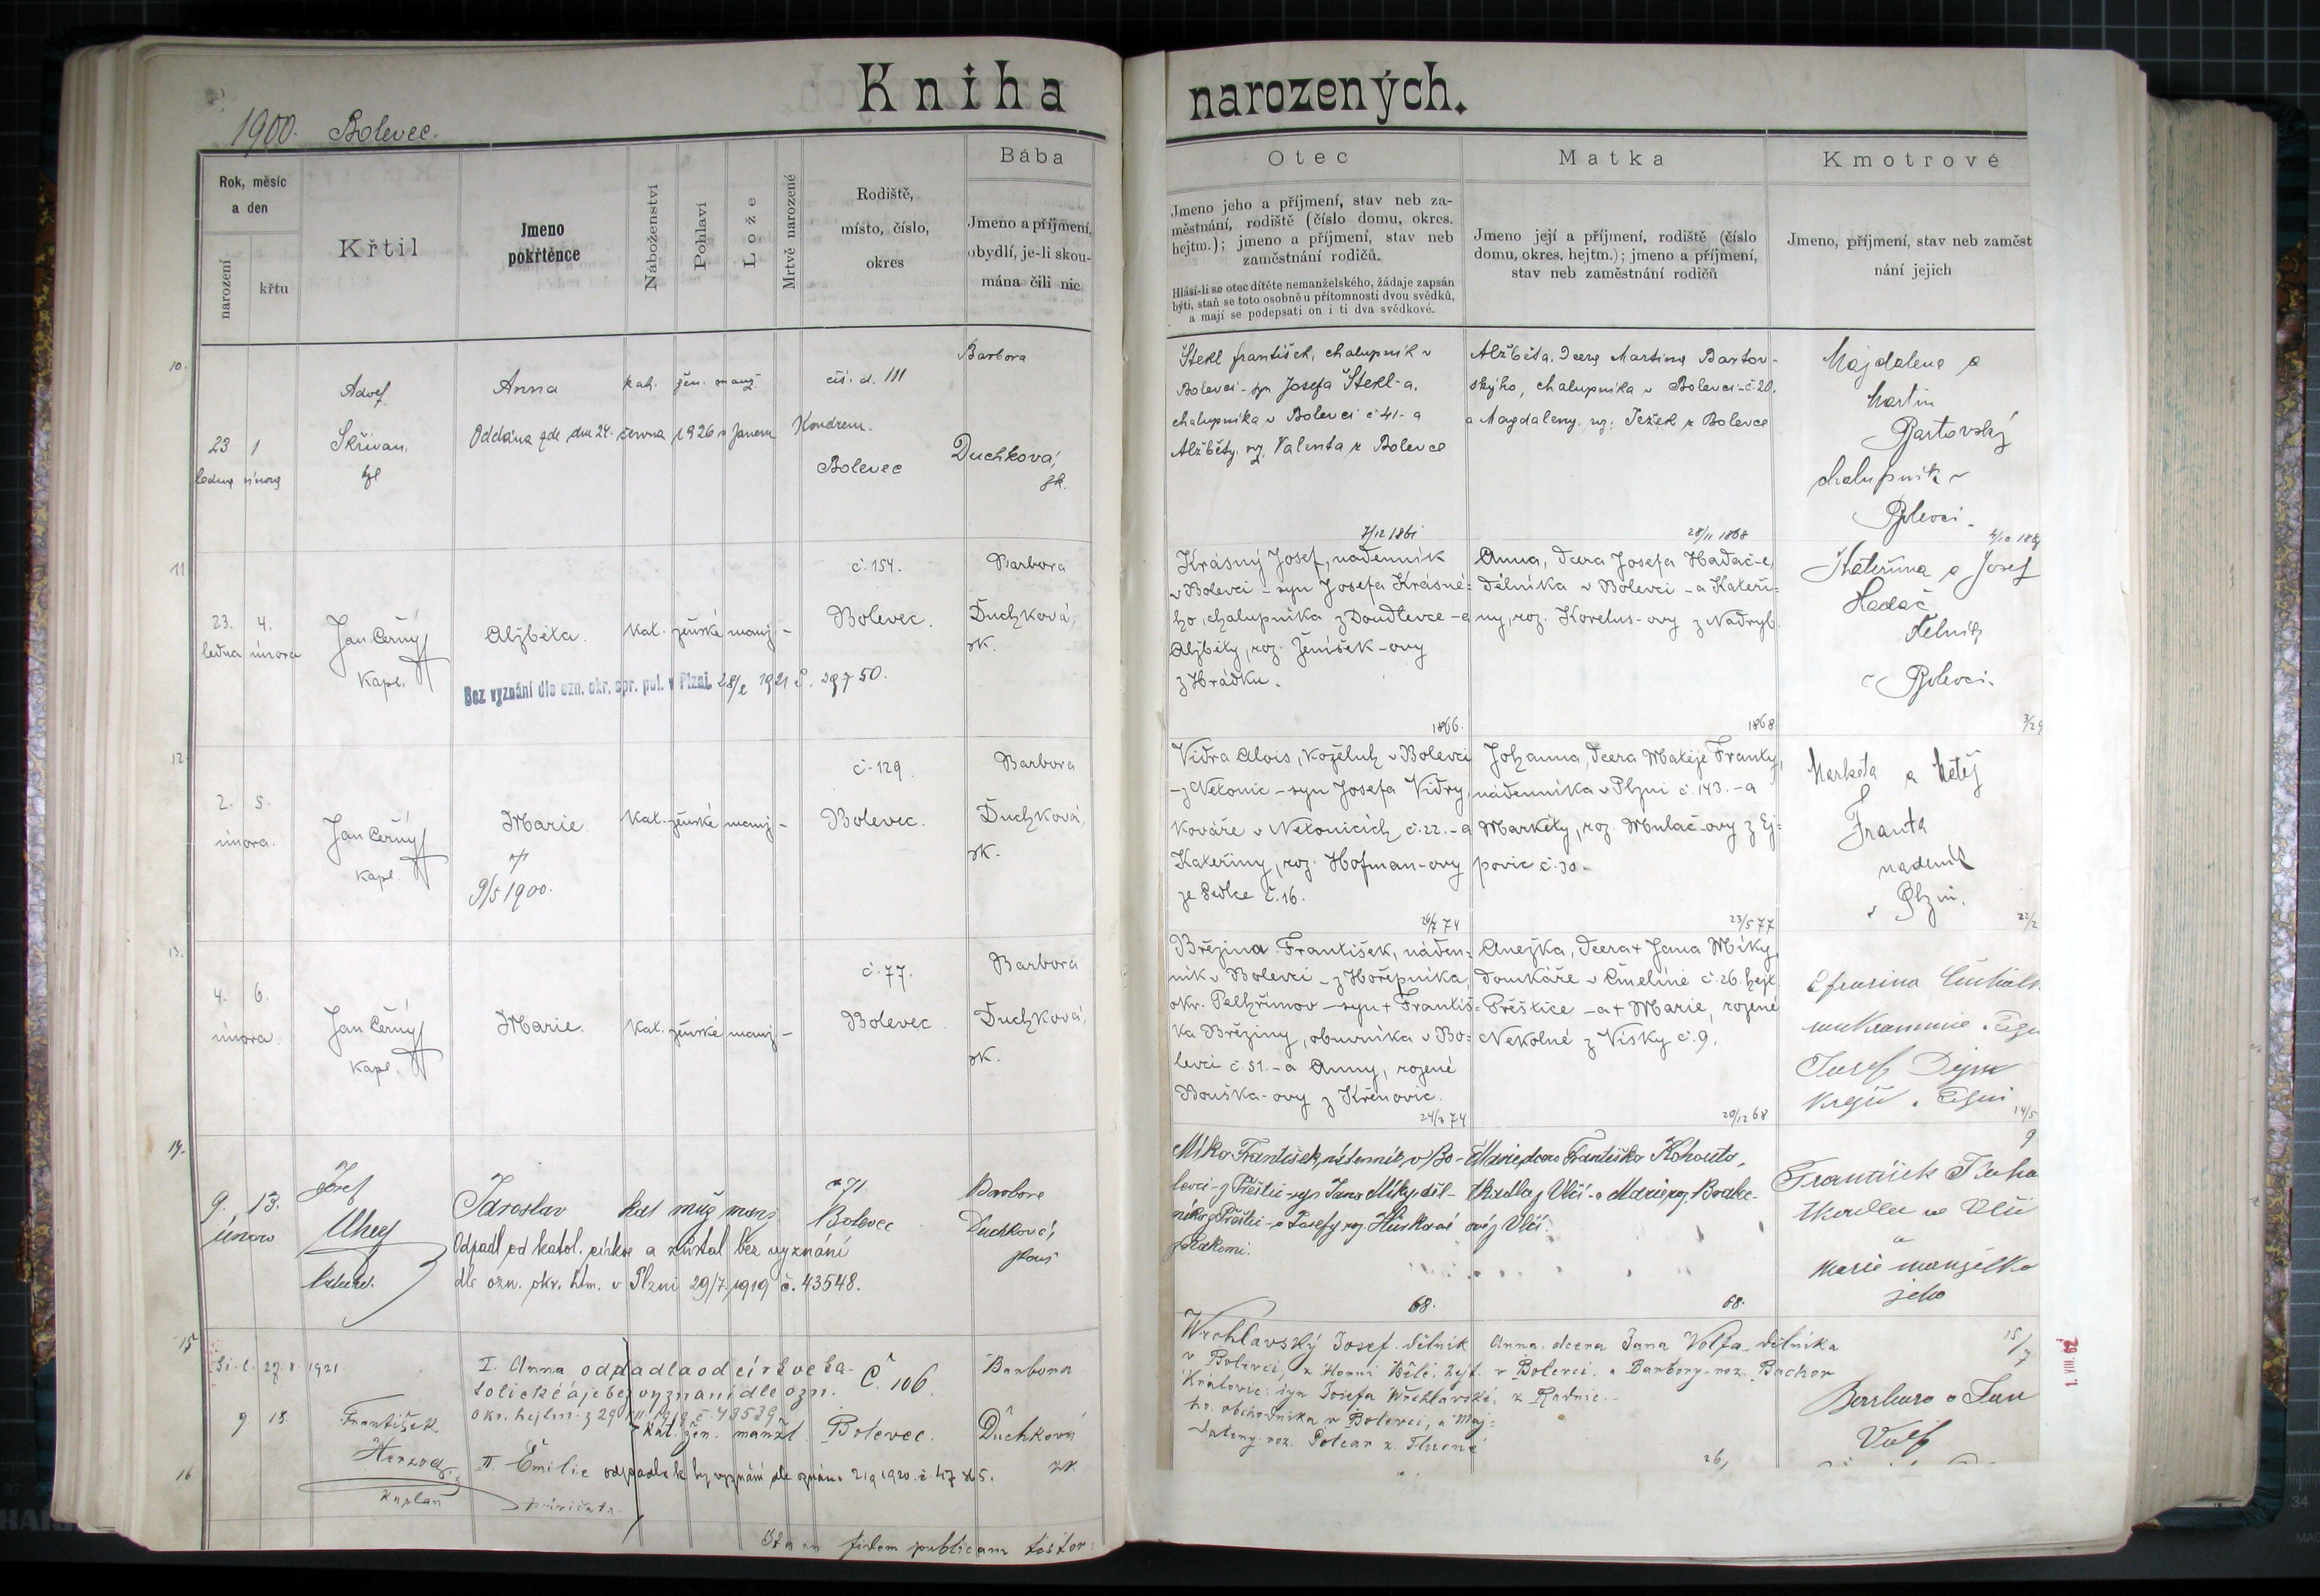 Kniha narozených.
1900. Bolevec.
Rok, měsíc
a den
narození
křtu
Křtil
Jmeno
pokřtěnce
Náboženství
Pohlaví
Lože
Mrtvě narozené
Rodiště,
místo, číslo,
okres
Bába
Jmeno a příjmení,
obydlí, je-li skou-
mána čili nic
Otec
Jmeno jeho a příjmení, stav neb za-
městnání, rodiště (číslo domu, okres.
hejtm.); jmeno a příjmení, stav neb
zaměstnání rodičů.
Hlásí-li se otec dítěte nemanželského, žádaje zapsán
býti, staň se toto osobně u přítomnosti dvou svědků,
a mají se podepsati on i ti dva svědkové.
Matka
Jmeno její a příjmení, rodiště (číslo
domu, okres, hejtm.); jmeno a příjmení,
stav neb zaměstnání rodičů
Kmotrové
Jmeno, příjmení, stav neb zaměst
nání jejich
10.
23 1
ledna února
Adolf
Skřivan
Anna
kat. žen. manž.
čís. d. 111
Bolevec
Oddána zde dne 24. června 1926 s Janem Kondrem.
Barbora
Duchková,
zk.
Štekl František, chalupník v
Bolevci - syn Josefa Štekl-a,
chalupníka v Bolevci č 41 - a
Alžběty, roz. Valenta z Bolevce
Alžběta, dcera Martina Bartov-
ského, chalupníka v Bolevci - č. 20.
a Magdaleny, roz. Ježek z Bolevce
Majdalena a
Martin
Bartovský
chalupník v
Bolevci.
11
23. 4.
ledna února
Jan Černý
kapl.
Alžběta.
kat. ženské manž. -
č. 154.
Bolevec.
Barbora
Duchková,
zk.
Bez vyznání dle ozn. okr. spr. pol. v Plzni 28/2 1921 č. 29750.
7/12 1861
Krásný Josef, nádenník
v Bolevci - syn Josefa Krásné-
ho, chalupníka z Doudlevce - a
Alžběty, roz. Jeníšek-ovy
z Hrádku.
28/11 1868
Anna, dcera Josefa Hadač-e,
dělníka v Bolevci - a Kateři-
ny, roz. Korelus-ovy z Nadryb.
Kateřina a Josef
Hadač
dělník
v Bolevci.
12.
2. 5.
února.
Jan Černý
kapl.
Marie.
9/5 1900.
kat. ženské manž. -
č. 129.
Bolevec.
Barbora
Duchková,
zk.
1866.
Vidra Alois, koželuh v Bolevci
- z Netonic - syn Josefa Vidry,
kováře v Netonicích č. 22. - a
Kateřiny, roz. Hofman-ovy
ze Sedlce č. 16.
1868
Johanna, dcera Matěje Franty,
nádenníka v Plzni č. 143. - a
Markéty, roz. Mulač-ovy z Ej-
povic č. 30 -
Marketa a Matěj
Franta
nadeník
v Plzni.
13.
4. 6.
února.
Jan Černý
kapl.
Marie.
kat. ženské manž. -
č. 77.
Bolevec
Barbora
Duchková,
zk.
26/7 74
Březina František, náden-
ník v Bolevci - z Hořepníka,
okr. Pelhřimov - syn + Františ-
ka Březiny, obuvníka v Bo-
levci č. 51. - a Anny, rozené
Bouška-ovy z Křenovic.
23/5 77
Anežka, dcera + Jana Míky,
domkáře v Čmelíně č. 26. hejt.
Přeštice - a + Marie, rozené
Nekolné z Vísky č. 9.
Josef
14.
9. 13.
února
Josef
Uhel
Jaroslav
kat muž manž
č 71.
Bolevec
Barbora
Duchková,
Odpadl od katol. církve a zůstal bez vyznání
dle ozn. okr. htm. v Plzni 29/7. 1919 č. 43548.
24/3 74
Míka František, nádenník v Bo-
levci - z Přeštic - syn Jana Míky, děl-
níka z Přeštic - a Josefy roz. Huskové
20/12 68
Marie, dcera Františka Kohouta,
tkadlce z Vlčí - a Marie roz.
František
tkadlec ve Vlčí
a
Marie manželka
jeho
15
9. 18.
František
Herzog
kaplan
I. Anna odpadla od církve ka-
tolické a je bez vyznání dle ozn.
okr. hejtm. z 29
kat. žen. manžl.
č. 106.
Bolevec.
Barbora
Duchková
zk.
II. Emilie odpadla k bez vyznání dle oznám.
dvojčata.
68.
Wrchlavský Josef dělník
v Bolevci, z Horní Bělé, hejt.
Kralovic; syn Josefa Wrchlavské-
ho, obchodníka v Bolevci, a Maj-
daleny roz. Polcar z Tlucné
68.
Anna, dcera Jana Volfa, dělníka
v Bolevci a Barbory roz. Bachor
z Radnic.
Barbora a Jan
Volf
16
Ita in fidem publicam testor: